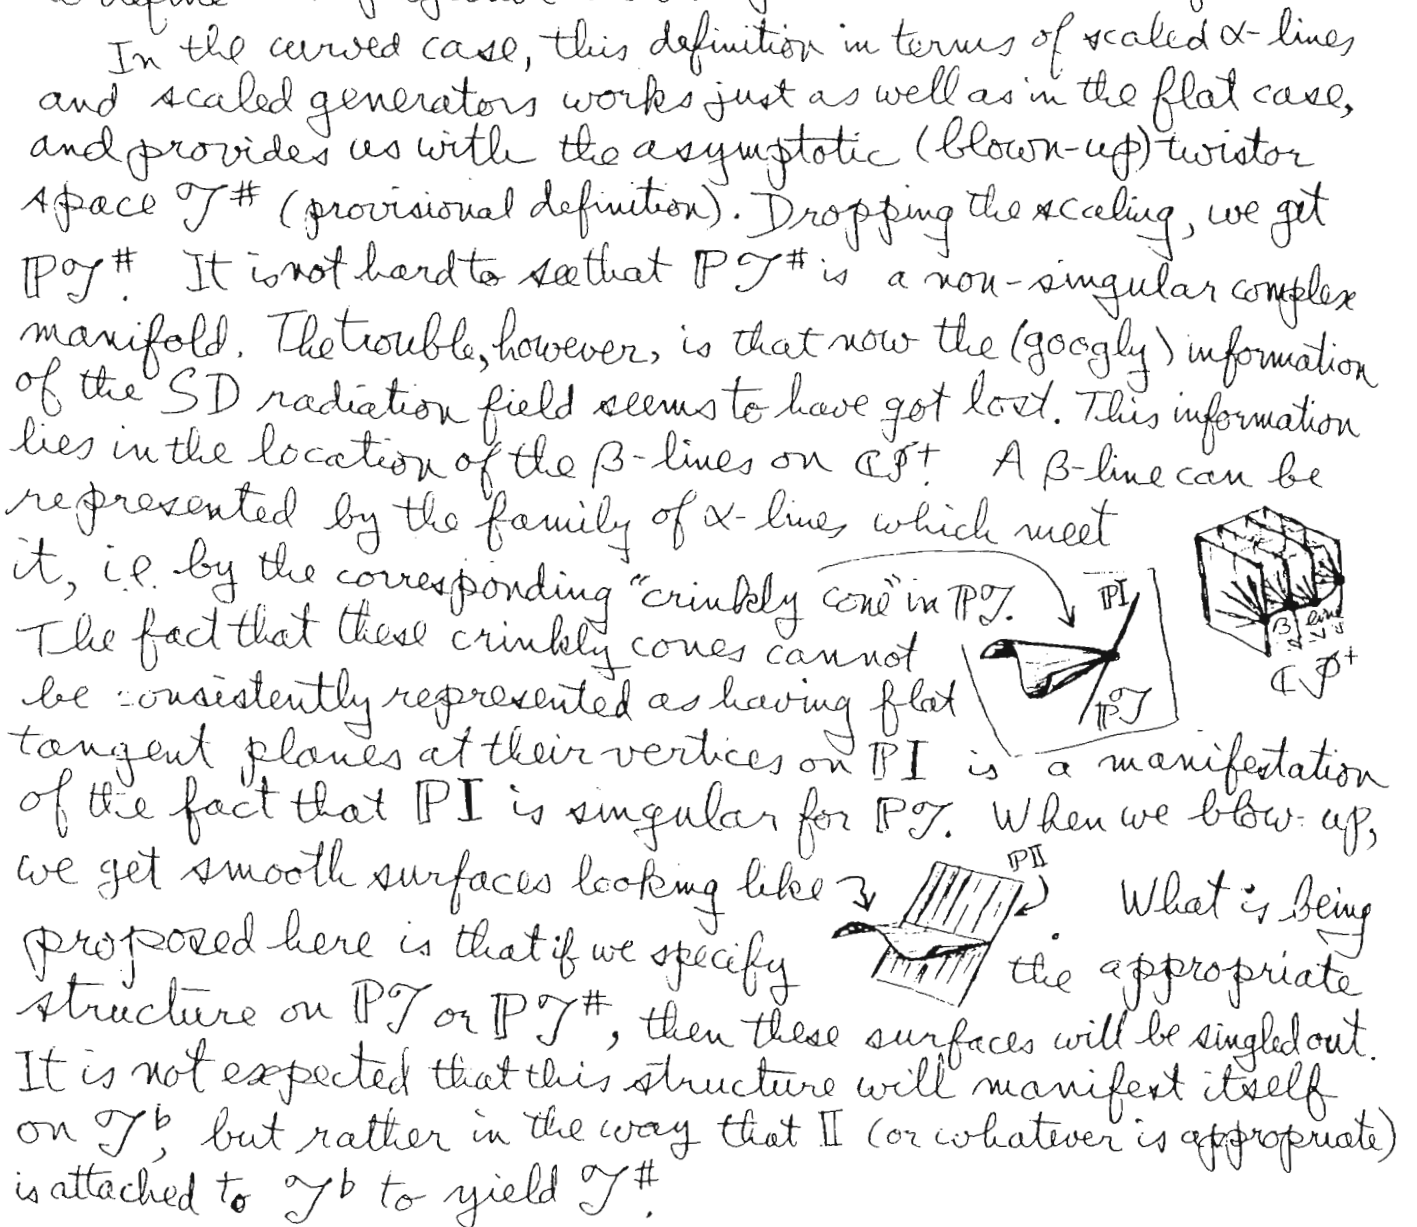 In the curved case, this definition in terms of scaled α-lines
and scaled generators works just as well as in the flat case,
and provides us with the asymptotic (blown-up) twistor
space 𝒯# (provisional definition). Dropping the scaling, we get
ℙ𝒯#. It is not hard to see that ℙ𝒯# is a non-singular complex
manifold. The trouble, however, is that now the (googly) information
of the SD radiation field seems to have got lost. This information
lies in the location of the β-lines on ℂ𝒥⁺. A β-line can be
represented by the family of α-lines which meet
it, i.e. by the corresponding "crinkly cone" in ℙ𝒯.
ℙI
β line
The fact that these crinkly cones cannot
ℂ𝒥⁺
be consistently represented as having flat
ℙ𝒯
tangent planes at their vertices on ℙI is a manifestation
of the fact that ℙI is singular for ℙ𝒯. When we blow-up,
ℙ𝕀
we get smooth surfaces looking like . What is being
proposed here is that if we specify the appropriate
structure on ℙ𝒯 or ℙ𝒯#, then these surfaces will be singled out.
It is not expected that this structure will manifest itself
on 𝒯♭, but rather in the way that 𝕀 (or whatever is appropriate)
is attached to 𝒯♭ to yield 𝒯#.